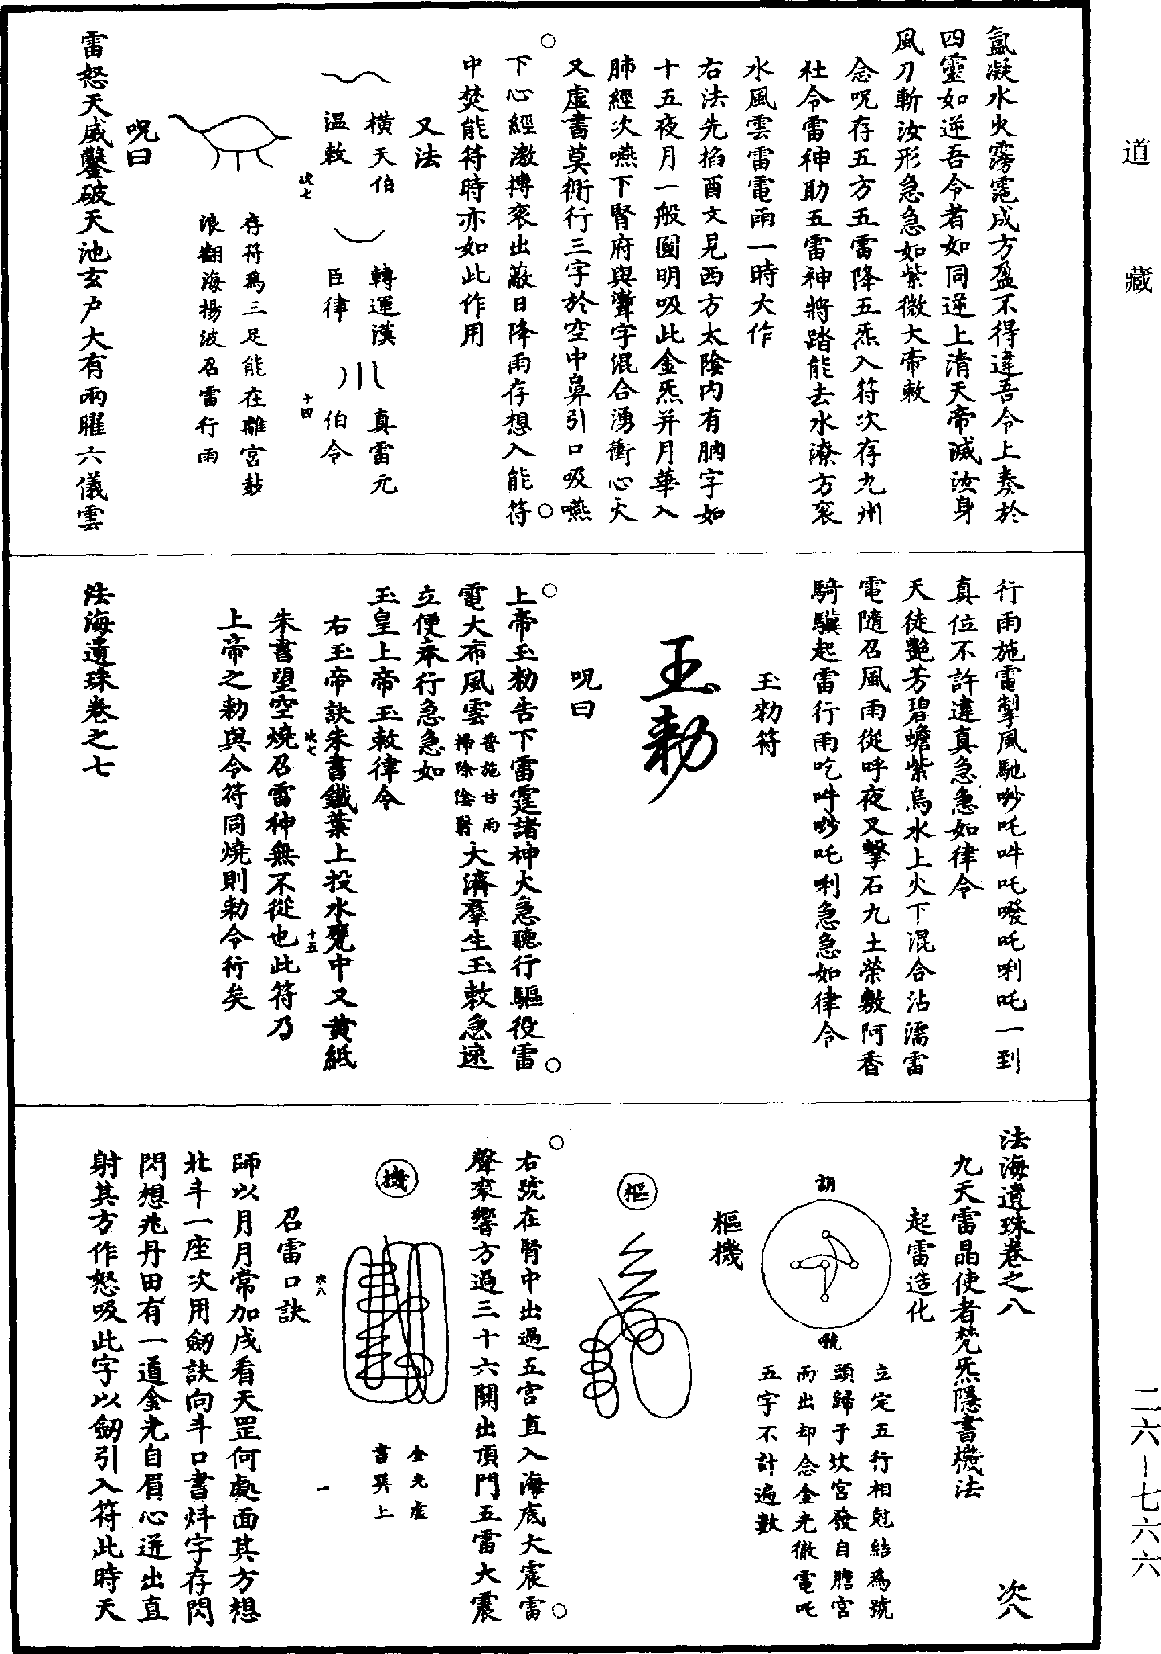 道藏
氤凝水火霧霓成方盈不得違吾令上奏於
四靈如逆吾令者如同逆上清天帝滅汝身
風刀斬汝形急急如紫微大帝敕
念呪存五方五雷降五炁入符次存九州
社令雷神助五雷神將踏能去水潦方衮
水風雲雷電雨一時大作
右法先掐酉文見西方太陰內有朒字如
十五夜月一般圓明吸此金炁并月華入
肺經次嚥下腎府與𩆜字混合湧衝心火
又虛書莫衕行三字於空中鼻引口吸嚥
下心經激搏衮出敵日降雨存想入能符
中焚能符時亦如此作用
又法
橫天伯 轉運漢 真雷元
溫敕 巨律 伯令
次七 十四
存符為三足能在離宮鼓
浪翻海揚波召雷行雨
呪曰
雷怒天威鑿破天池玄戶大有兩曜六儀雲
行雨施雷掣風馳吵吒吽吒㗶吒唎吒一到
真位不許違真急急如律令
天徒艷芳碧蟾紫烏水上火下混合沾濡雷
電隨召風雨從呼夜叉擊石九土榮敷阿香
騎驥起雷行雨吃吽吵吒唎急急如律令
玉勑符
玉勅
呪曰
上帝玉勑告下雷霆諸神火急聽行驅役雷
電大布風雲普施甘雨掃除陰翳大濟羣生玉敕急速
立便奉行急急如
玉皇上帝玉敕律令
右玉帝訣朱書鐵葉上投水甕中又黃紙
朱書望空燒召雷神無不從也此符乃
上帝之勑與令符同燒則勑令行矣
次七 十五
法海遺珠卷之七
法海遺珠卷之八 次八
九天雷晶使者梵炁隱書機法
起雷造化
胡 號
立定五行相尅結為號
頭歸于坎宮發自膽宮
而出却念金光徹電吒
五字不計遍數
樞機
樞
右號在腎中出過五宮直入海底大震雷
聲衮響方過三十六關出頂門五雷大震
機
金光虛
書巽上
次八 一
召雷口訣
師以月月常加戌看天罡何處面其方想
北斗一座次用劒訣向斗口書炓字存閃
閃想兆丹田有一道金光自眉心迸出直
射其方作怒吸此字以劒引入符此時天
二六—七六六